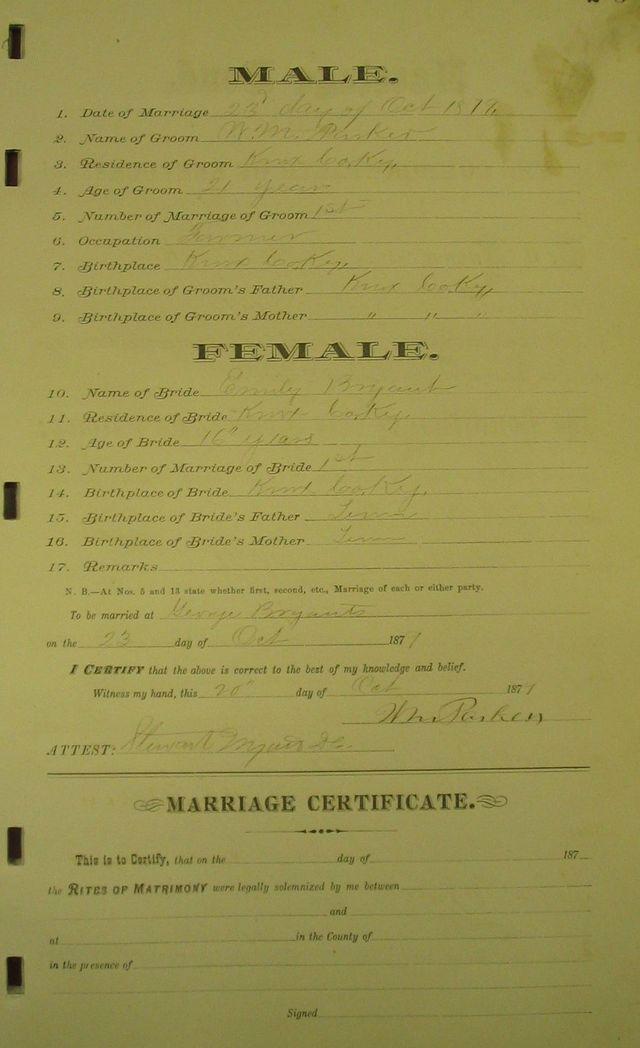 MALE.
1. Date of Marriage 23d day of Oct 1879
2. Name of Groom W.M. Parker
3. Residence of Groom Knox Co Ky
4. Age of Groom 21 years
5. Number of Marriage of Groom 1st
6. Occupation Farmer
7. Birthplace Knox Co Ky
8. Birthplace of Groom's Father Knox Co Ky
9. Birthplace of Groom's Mother " " "
FEMALE.
10. Name of Bride Emily Bryant
11. Residence of Bride Knox Co Ky
12. Age of Bride 16 years
13. Number of Marriage of Bride 1st
14. Birthplace of Bride Knox Co Ky
15. Birthplace of Bride's Father Tenn
16. Birthplace of Bride's Mother Tenn
17. Remarks
N. B.—At Nos. 5 and 13 state whether first, second, etc., Marriage of each or either party.
To be married at George Bryants
on the 23 day of Oct 187
I CERTIFY that the above is correct to the best of my knowledge and belief.
Witness my hand, this 20 day of Oct 187
Wm Parker
ATTEST: Stewart
MARRIAGE CERTIFICATE.
This is to Certify, that on the day of 187
the RITES OF MATRIMONY were legally solemnized by me between
and
at in the County of
in the presence of
Signed